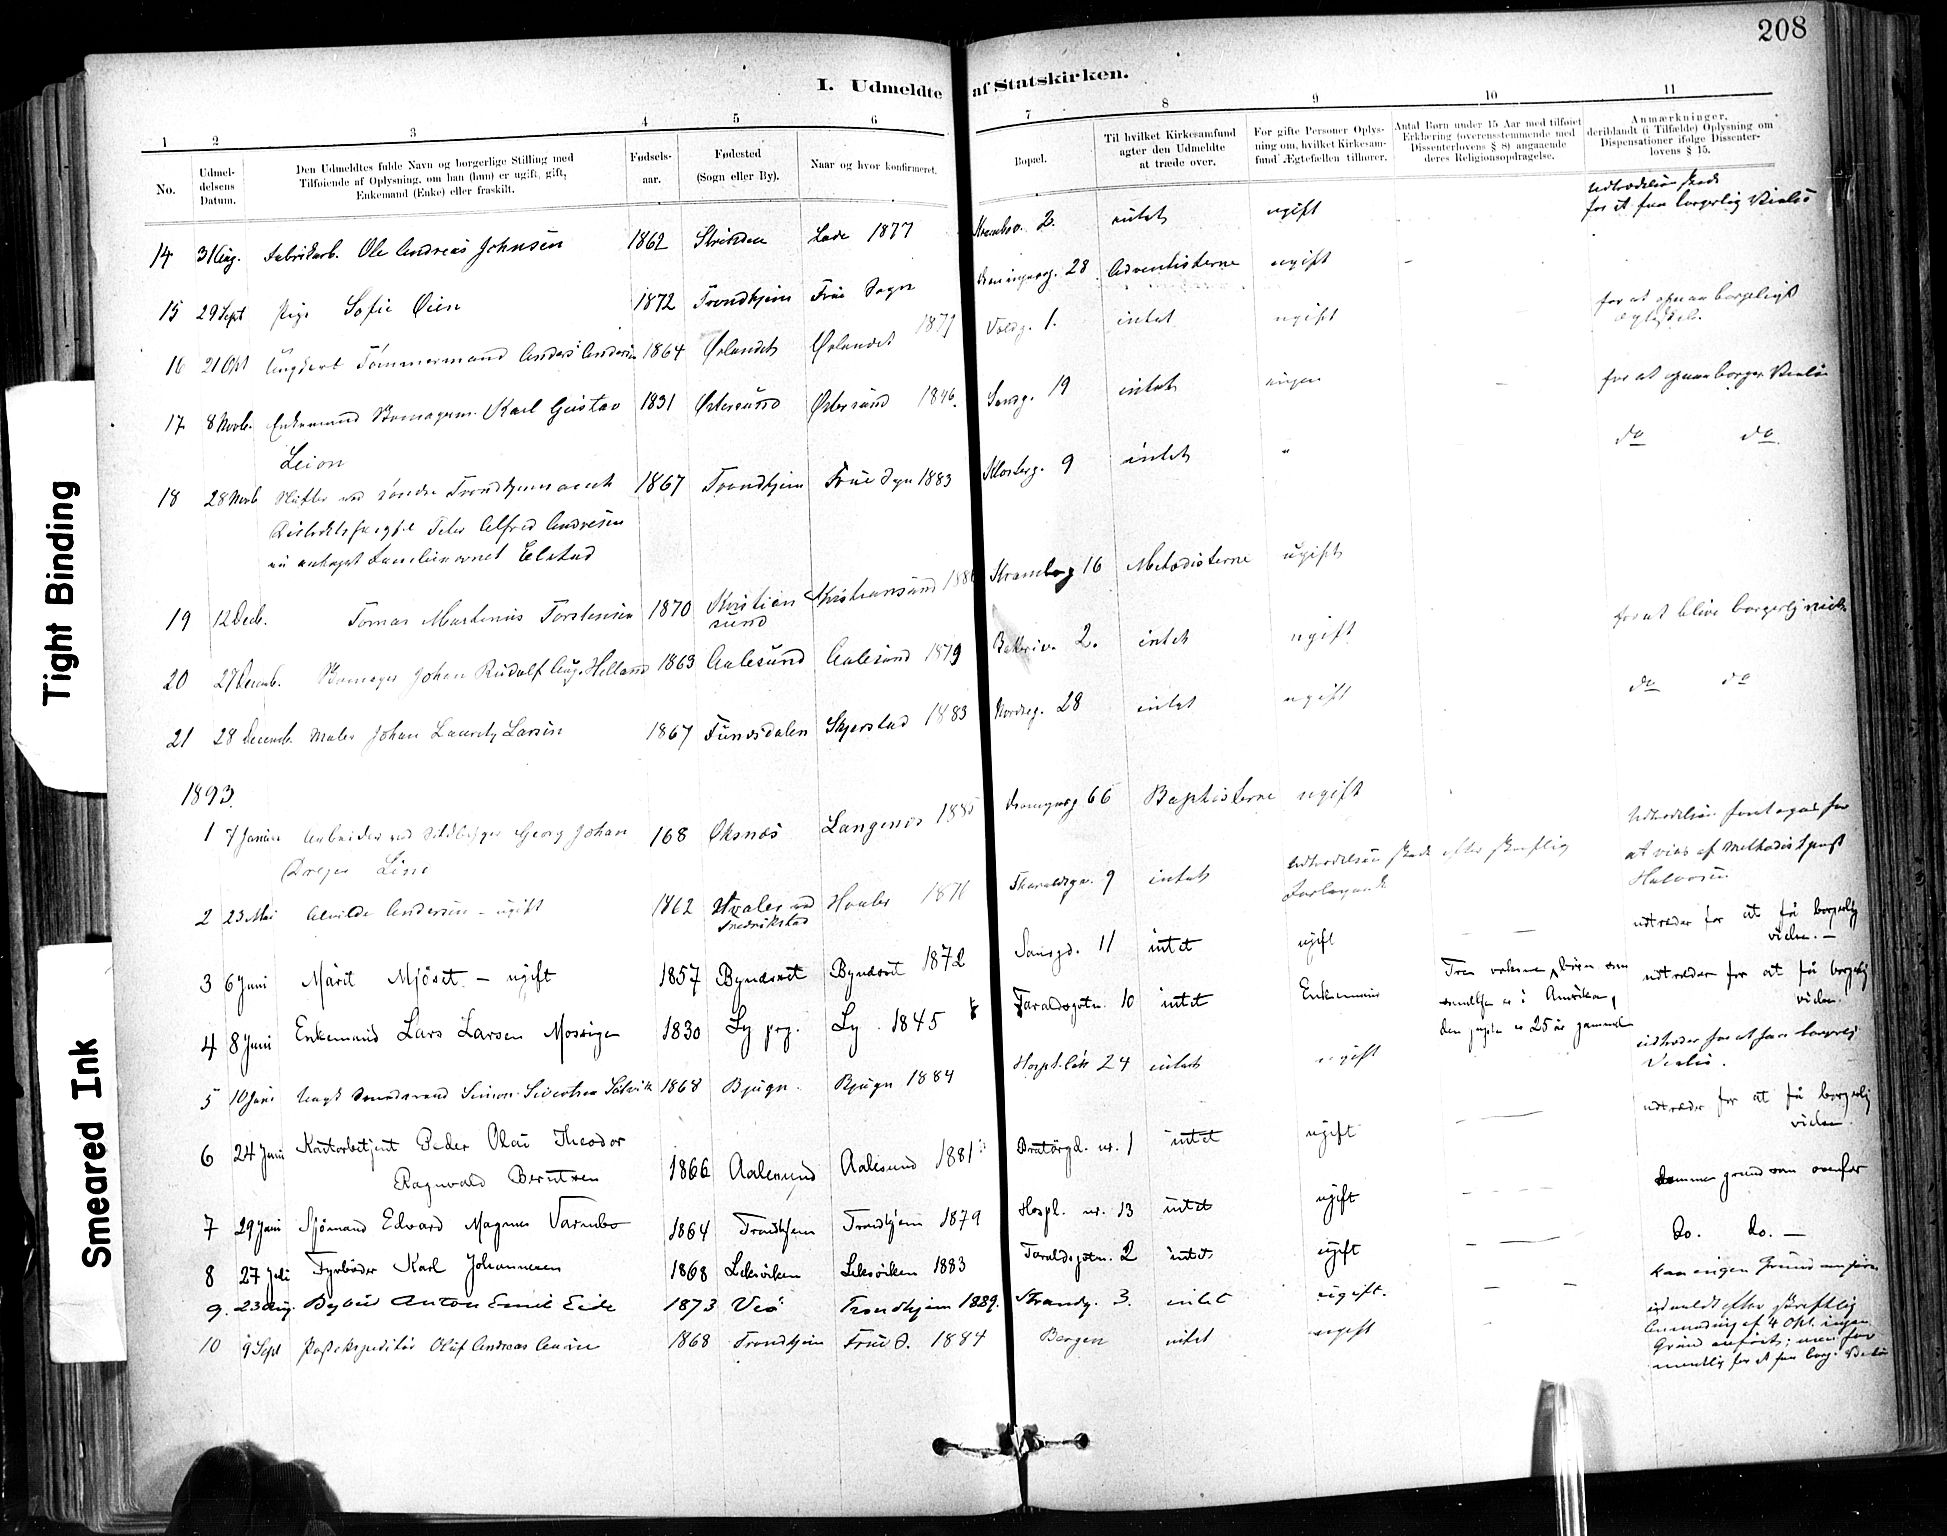 208
I. Udmeldte af Statskirken.
1 2 3 4 5 6 7 8 9 10 11
No.
Udmel-
delsens
Datum.
Den Udmeldtes fulde Navn og borgerlige Stilling med
Tilføiende af Oplysning, om han (hun) er ugift, gift,
Enkemand (Enke) eller fraskilt.
Fødsels-
aar.
Fødested
(Sogn eller By).
Naar og hvor konfirmeret.
Bopæl.
Til hvilket Kirkesamfund
agter den Udmeldte
at træde over.
For gifte Personer Oplys-
ning om, hvilket Kirkesam-
fund Ægtefællen tilhører.
Antal Børn under 15 Aar med tilføiet
Erklæring (overensstemmende med
Dissenterlovens § 8) angaaende
deres Religionsopdragelse.
Anmærkninger,
deriblandt (i Tilfælde) Oplysning om
Dispensationer ifølge Dissenter-
lovens § 15.
14 31 Aug. Fabrikarb. Ole Andreas Johnsen 1862 Strinden Lade 1877 2. intet ugift Udtrædelsen skede
for at faa borgerlig Vielse
15 29 Sept Pige Sofie Øien 1872 Trondhjem Frue Sogn 28 Adventisterne ugift
16 21 Okt Ungkarl Tømmermand Anders Andersen 1864 Ørlandet Ørlandet 1879 Voldg. 1. intet ugift for at opnaa borgerligt
17 8 Novb. Enkemand Skomagerm. Karl Gustav 1831 Østersund Østersund 1846. Sandg. 19 intet ingen for at opnaa borger. Vielse
Leion
18 28 Novb ved søndre Trondhjems 1867 Trondhjem Frue Sogn 1883 Klosterg. 9 intet " do do
Peter Alfred Andresen
antaget Familienavnet Elstad
19 12 Decb. Tomas Martinius Torstensen 1870 Kristian
sund Kristiansund Kramb.g 16 Metodisterne ugift
20 27 Decemb. Skomager Johan Rudolf Aug. Helland 1863 Aalesund Aalesund 1879 Bakkeriv. 2. intet ugift for at blive borgerlig viet
21 28 Decemb. Maler Johan Lauritz Larsen 1867 Funæsdalen Skjerstad 1883 Nordreg. 28 intet ugift do do
1893.
1 7 Januar Arbeider ved Georg Johan 168 Øksnæs Langenes 66 Baptisterne ugift
Dreyer
2 23 Mai Alvilde Andersen - ugift 1862 Hvaler ved
Fredrikstad Hvaler 9 intet Udtrædelsen skede efter skriftlig
Forlangende Udtrædelsen foretages for
at vies af Methodistprest
Halvorsen
3 6 Juni Marit Mjöset - ugift 1857 Byneset Byneset 1872 Sandgd. 11 intet ugift udtræder for at få borgerlig
vielse. —
4 8 Juni Enkemand Lars Larsen Mossige 1830 Ly prg. Ly 1845 Taraldsgotn. 10 intet Enkemand Tre voksne børn som
er i Amerika,
den yngste er 25 år gammel udtræder for at få borgerlig
vielse.
5 10 Juni Ungk Simon Sivertsen 1868 Bjugn. Bjugn 1884 Hospt.løk 24 intet ugift udtræder for at faa borgerlig
Vielse.
6 24 Juni Kontorbetjent Peder Olai Theodor
Ragnvald Berntsen 1866 Aalesund Aalesund 1881 Bratörgd. nr. 1 intet ugift udtræder for at få borgerlig
vielse.
7 29 Juni Sjømand Edvard Magnus Varmbo 1864 Trondhjem Trondhjem 1879 Hospl. nr. 13 intet ugift Samme grund som ovenfor
8 27 Juli Fyrbøder Karl Johannesen 1868 Leksviken Leksviken 1883 Taraldsgotn. 2 intet ugift Do. do. —
9. 23 Aug. Bybud Anton Emil Eide 1873 Veö Trondhjem 1889. Strandg. 3. intet ugift. kan ingen Grund anføre
10 9 Sept Postekspeditør Oluf Andreas Aune 1868 Trondhjem Frue S. 1884 Bergen intet ugift udmeldt efter skriftlig
Anmodning af 4 Okt. ingen
Grund anført; men for
mentlig for at faa borg. Vielse
Tight Binding
Smeared Ink